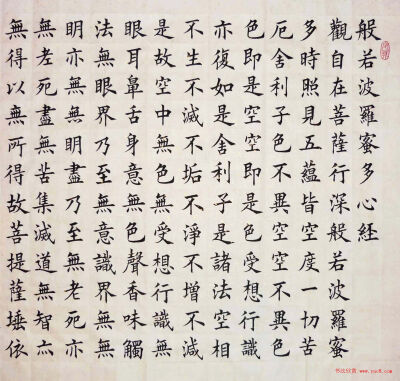 般若波羅蜜多心経
觀自在菩薩行深般若波羅蜜
多時照見五蘊皆空度一切苦
厄舍利子色不異空空不異色
色即是空空即是色受想行識
亦復如是舍利子是諸法空相
不生不滅不垢不淨不增不減
是故空中無色無受想行識無
眼耳鼻舌身意無色聲香味觸
法無眼界乃至無意識界無無
明亦無無明盡乃至無老死亦
無老死盡無苦集滅道無智亦
無得以無所得故菩提薩埵依
书法欣赏 www.yac8.com